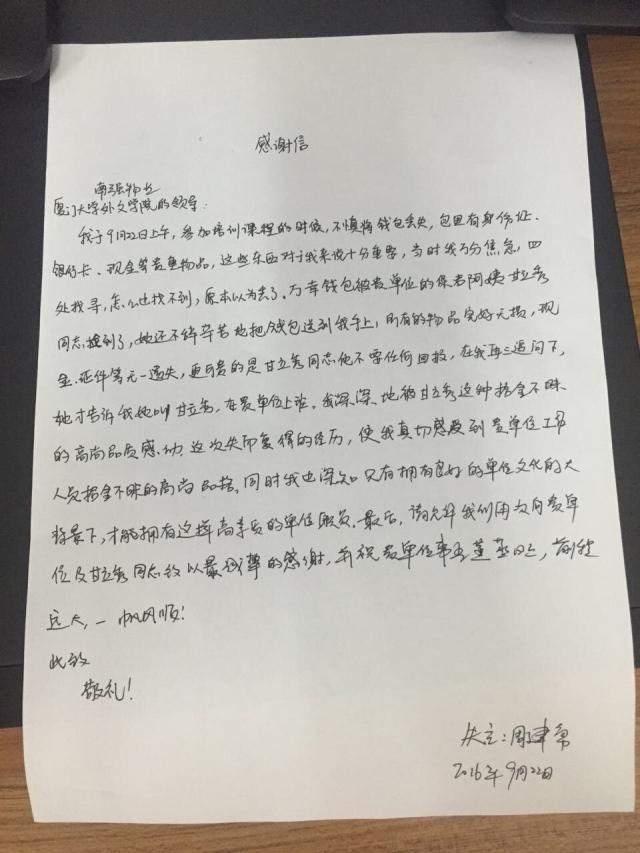 感谢信
南强物业
厦门大学外文学院的领导:
我于9月22日上午,参加培训课程的时候,不慎将钱包丢失,包里有身份证、
银行卡、现金等贵重物品,这些东西对于我来说十分重要,当时我万分焦急,四
处找寻,怎么也找不到,原本以为丢了。万幸钱包被贵单位的保洁阿姨甘立秀
同志捡到了,她还不辞辛苦地把钱包送到我手上,所有的物品完好无损,现
金、证件等无一遗失,更可贵的是甘立秀同志他不要任何回报,在我再三追问下,
她才告诉我她叫甘立秀,在贵单位上班。我深深地被甘立秀这种拾金不昧
的高尚品质感动,这次失而复得的经历,使我真切感受到贵单位工作
人员拾金不昧的高尚品格,同时我也深知只有拥有良好的单位文化的大
背景下,才能拥有这样高素质的单位职员。最后,请允许我们用文向贵单
位及甘立秀同志致以最诚挚的感谢,并祝贵单位事业蒸蒸日上,前程
远大,一帆风顺!
此致
敬礼!
失主:周建
2016年9月22日